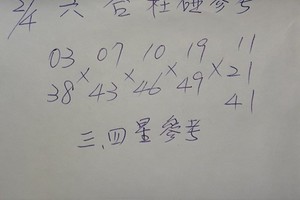 2/4 六合柱碰參考
03 07 10 19 11
× × × × 21
38 43 46 49 41
三、四星參考